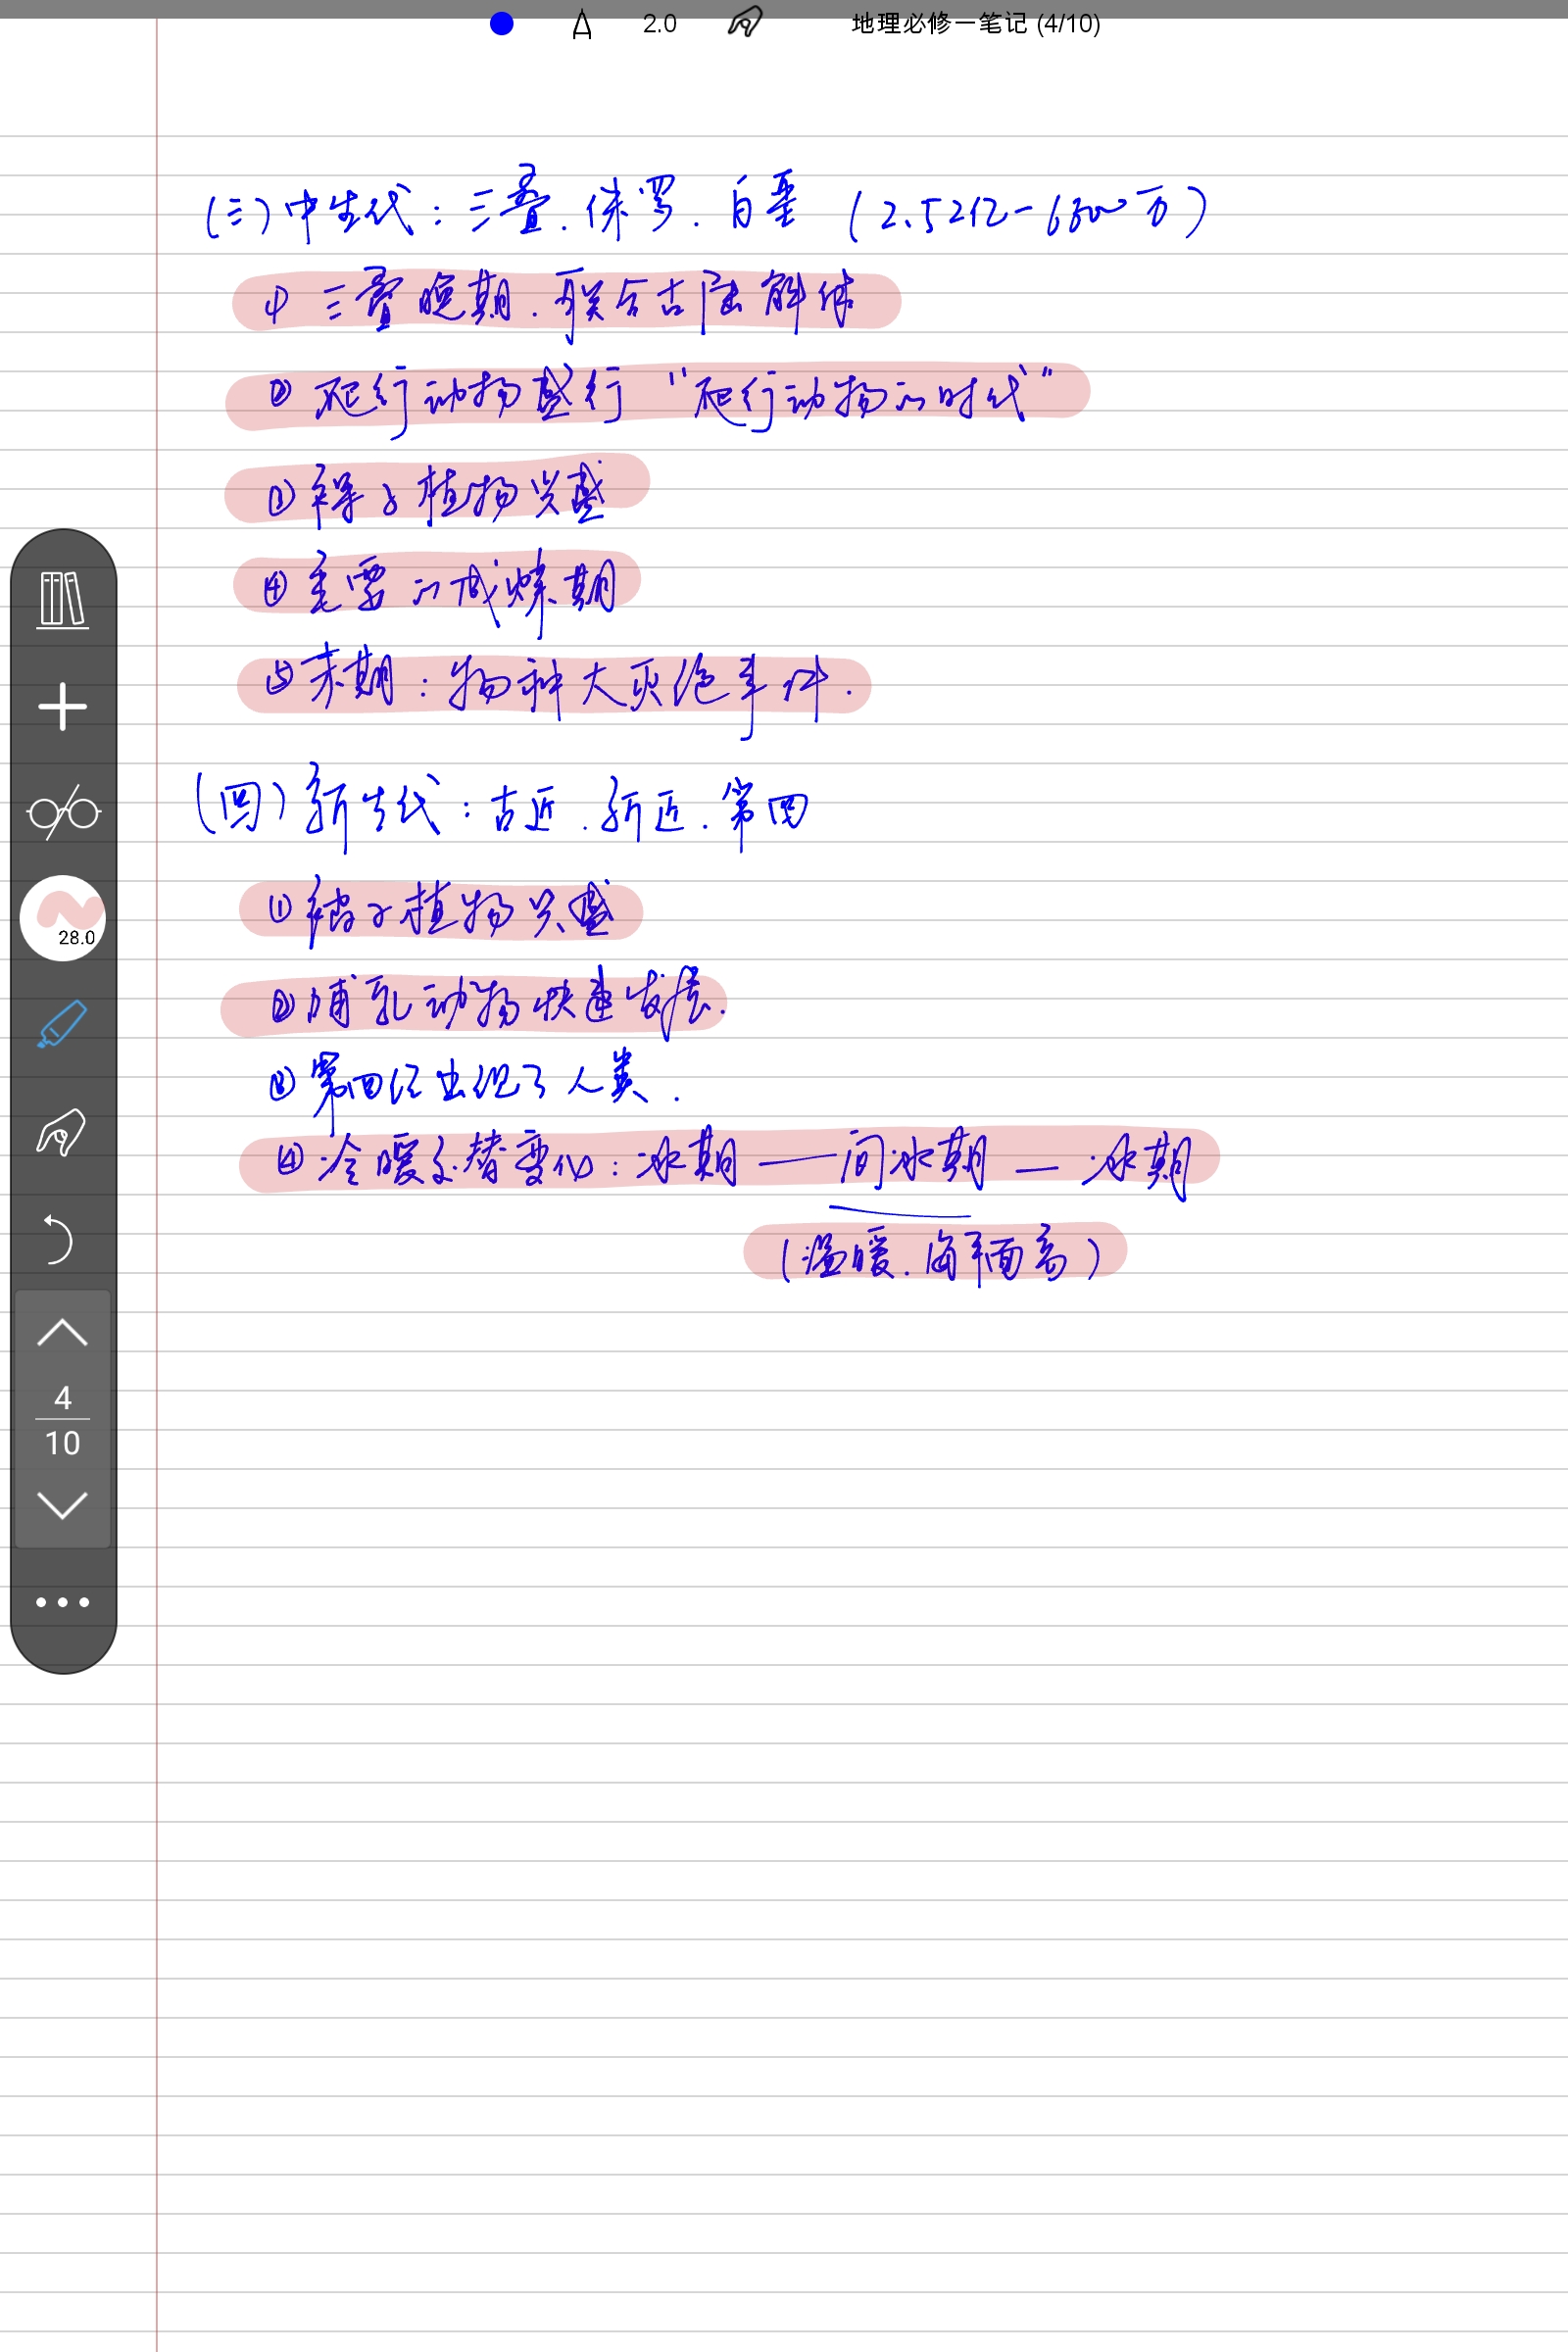 2.0 地理必修一笔记 (4/10)
(三)中生代：三叠.侏罗.白垩 (2.52亿-6600万)
① 三叠晚期.联合古陆解体
② 爬行动物盛行 "爬行动物的时代"
③ 裸子植物兴盛
④ 重要的成煤期
⑤ 末期：物种大灭绝事件.
(四)新生代：古近.新近.第四
① 被子植物兴盛
② 哺乳动物快速发展.
③ 第四纪出现了人类.
④ 冷暖交替变化：冰期——间冰期—冰期
(温暖.海平面高)
28.0
4
10